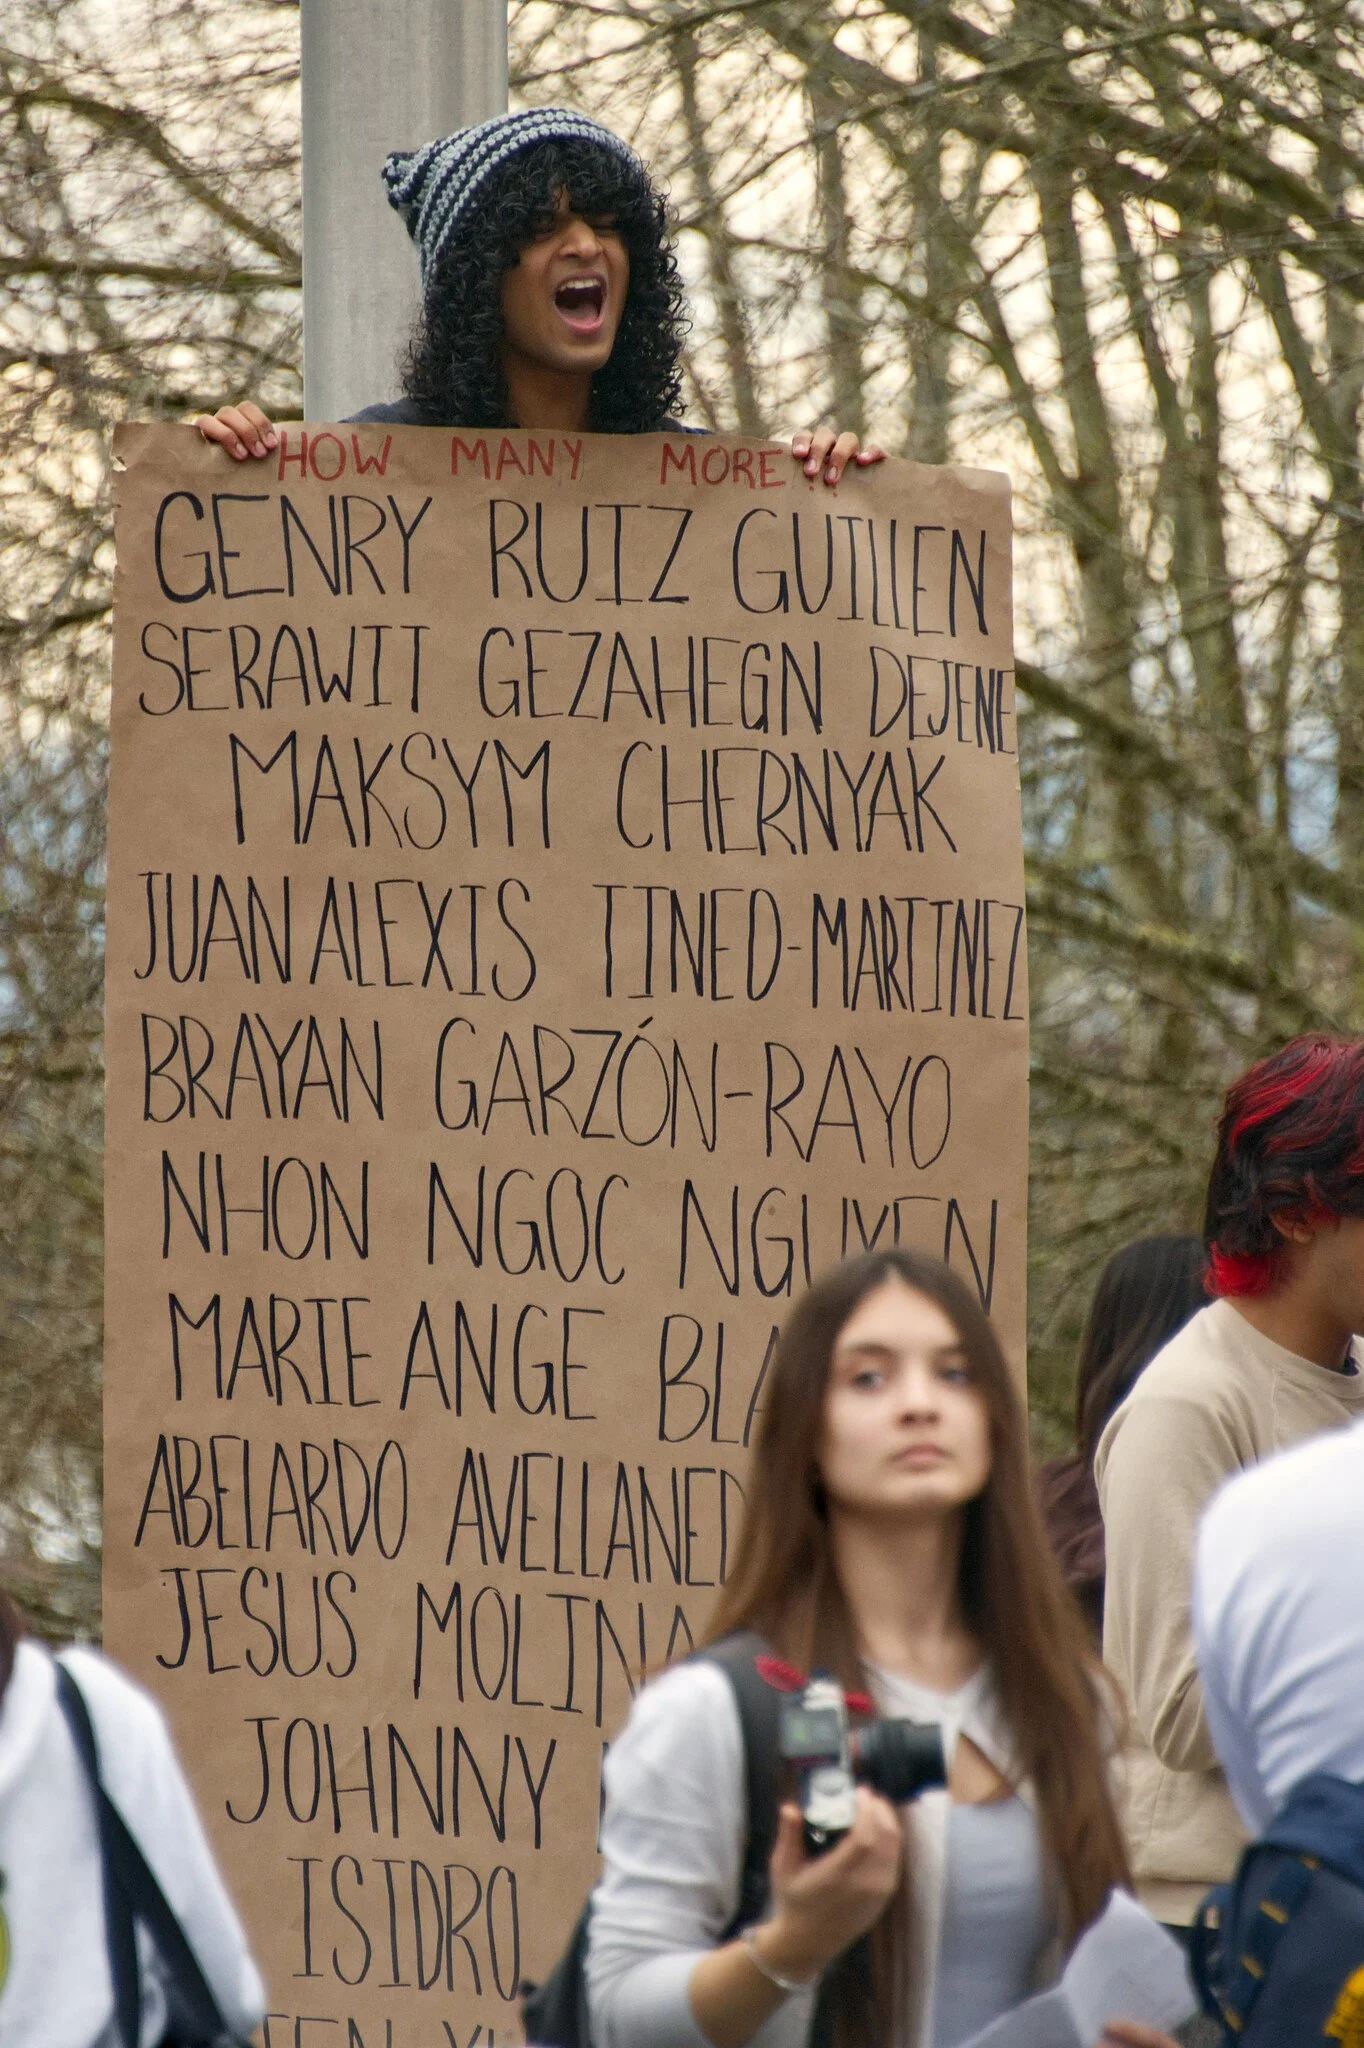 HOW MANY MORE!!
GENRY RUIZ GUILLEN
SERAWIT GEZAHEGN DEJENE
MAKSYM CHERNYAK
JUAN ALEXIS TINEO-MARTINEZ
BRAYAN GARZÓN-RAYO
NHON NGOC NGUYEN
MARIE ANGE
ABELARDO
JESUS MOLINA
JOHNNY
ISIDRO